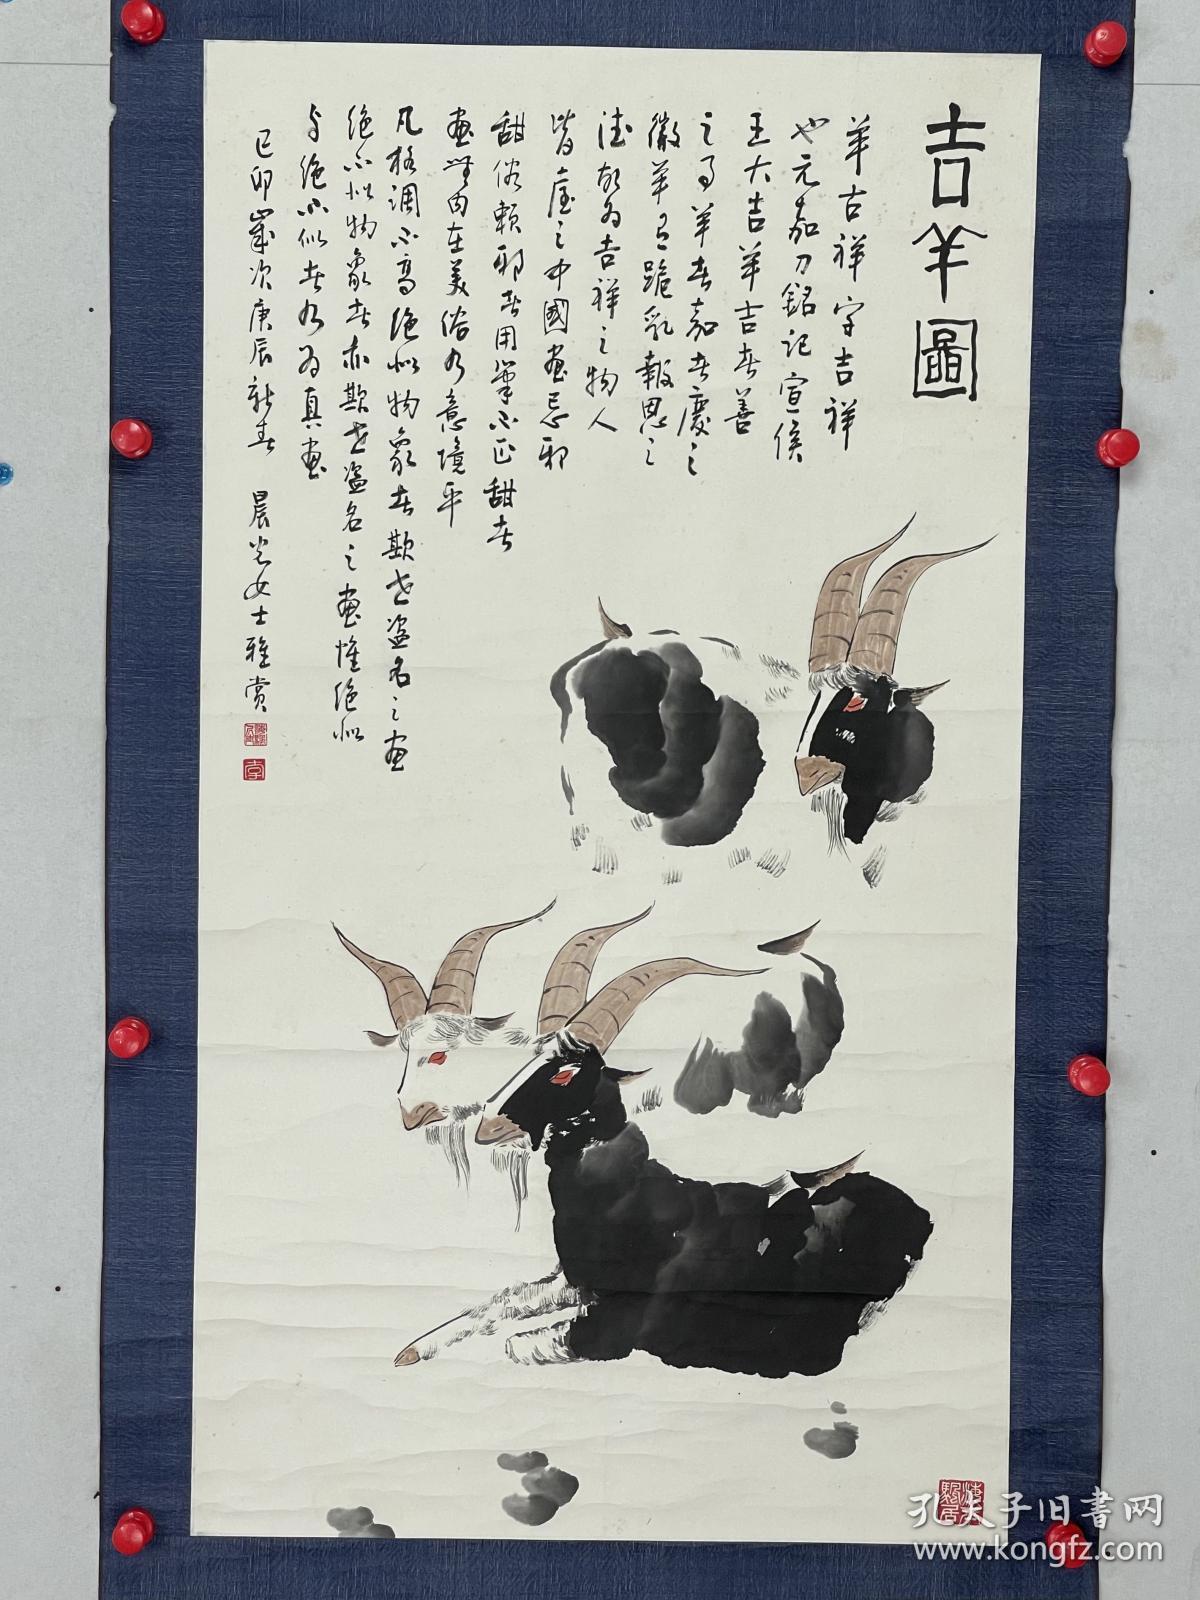 吉羊圖
羊古祥字吉祥
也元嘉刀銘記宣侯
王大吉羊吉者善
之事羊者嘉者慶之
徵羊有跪乳報恩之
德故為吉祥之物人
皆喜之中國畫忌邪
甜俗賴邪者用筆不正甜者
畫無內在美俗乃意境平
凡格調不高絕似物象者欺世盜名之畫
絕不似物象者亦欺世盜名之畫惟絕似
與絕不似者乃為真畫
己卯歲次庚辰新春 晨光女士雅賞
孔夫子旧书网
www.kongfz.com